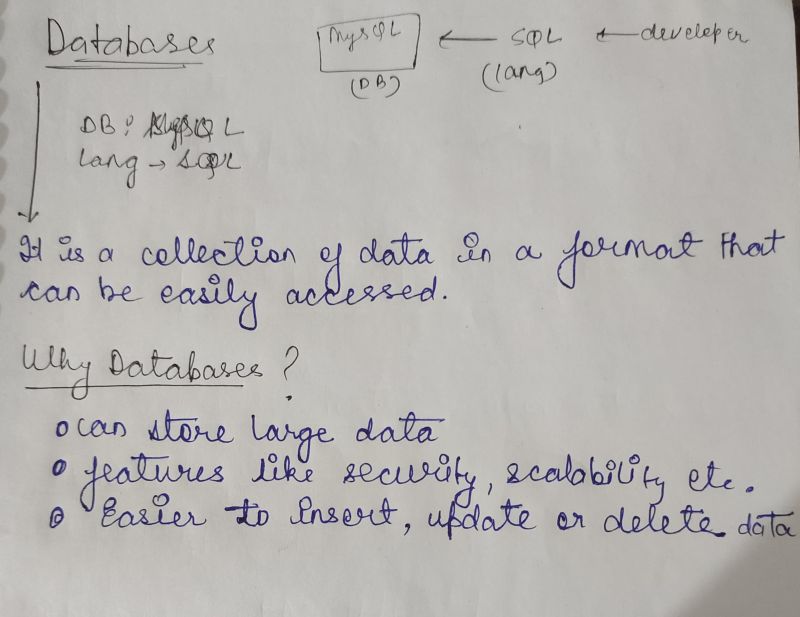 Databases
MySQL ← SQL ← developer
(DB) (lang)
DB: MySQL
lang → SQL
It is a collection of data in a format that
can be easily accessed.
Why Databases?
o can store large data
o features like security, scalability etc.
o Easier to insert, update or delete data